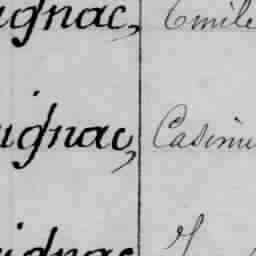 ignac, Emile
ignac, Casimi
ignac